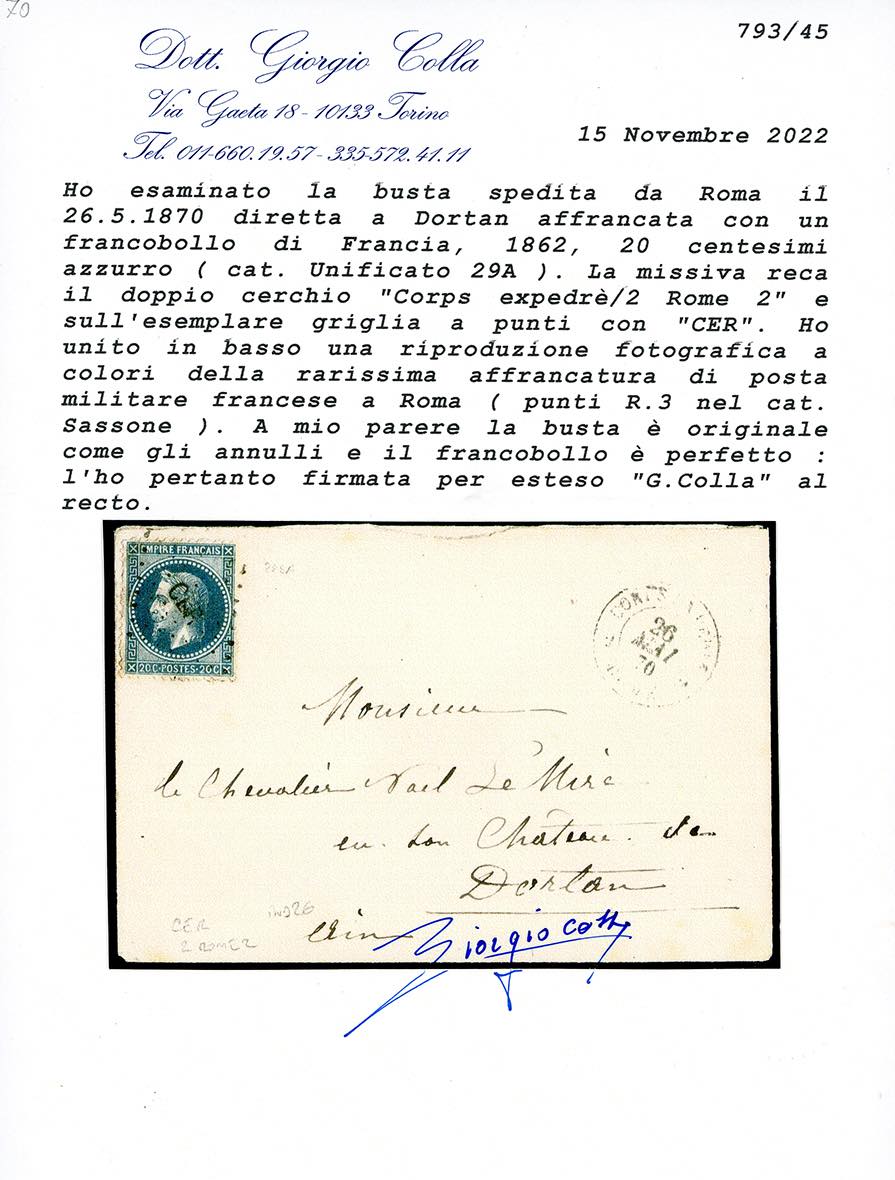 70
793/45
Dott. Giorgio Colla
Via Gaeta 18 - 10133 Torino
Tel. 011-660.19.57 - 335-572.41.11
15 Novembre 2022
Ho esaminato la busta spedita da Roma il
26.5.1870 diretta a Dortan affrancata con un
francobollo di Francia, 1862, 20 centesimi
azzurro ( cat. Unificato 29A ). La missiva reca
il doppio cerchio "Corps expedrè/2 Rome 2" e
sull'esemplare griglia a punti con "CER". Ho
unito in basso una riproduzione fotografica a
colori della rarissima affrancatura di posta
militare francese a Roma ( punti R.3 nel cat.
Sassone ). A mio parere la busta è originale
come gli annulli e il francobollo è perfetto :
l'ho pertanto firmata per esteso "G.Colla" al
recto.
EMPIRE FRANÇAIS
CER
20C·POSTES·20C
CORPS
26
MAI
70
Monsieur
le Chevalier Noel Le Mire
en son Château de
Dortan
Ain
CER
2 ROME 2
Giorgio Colla